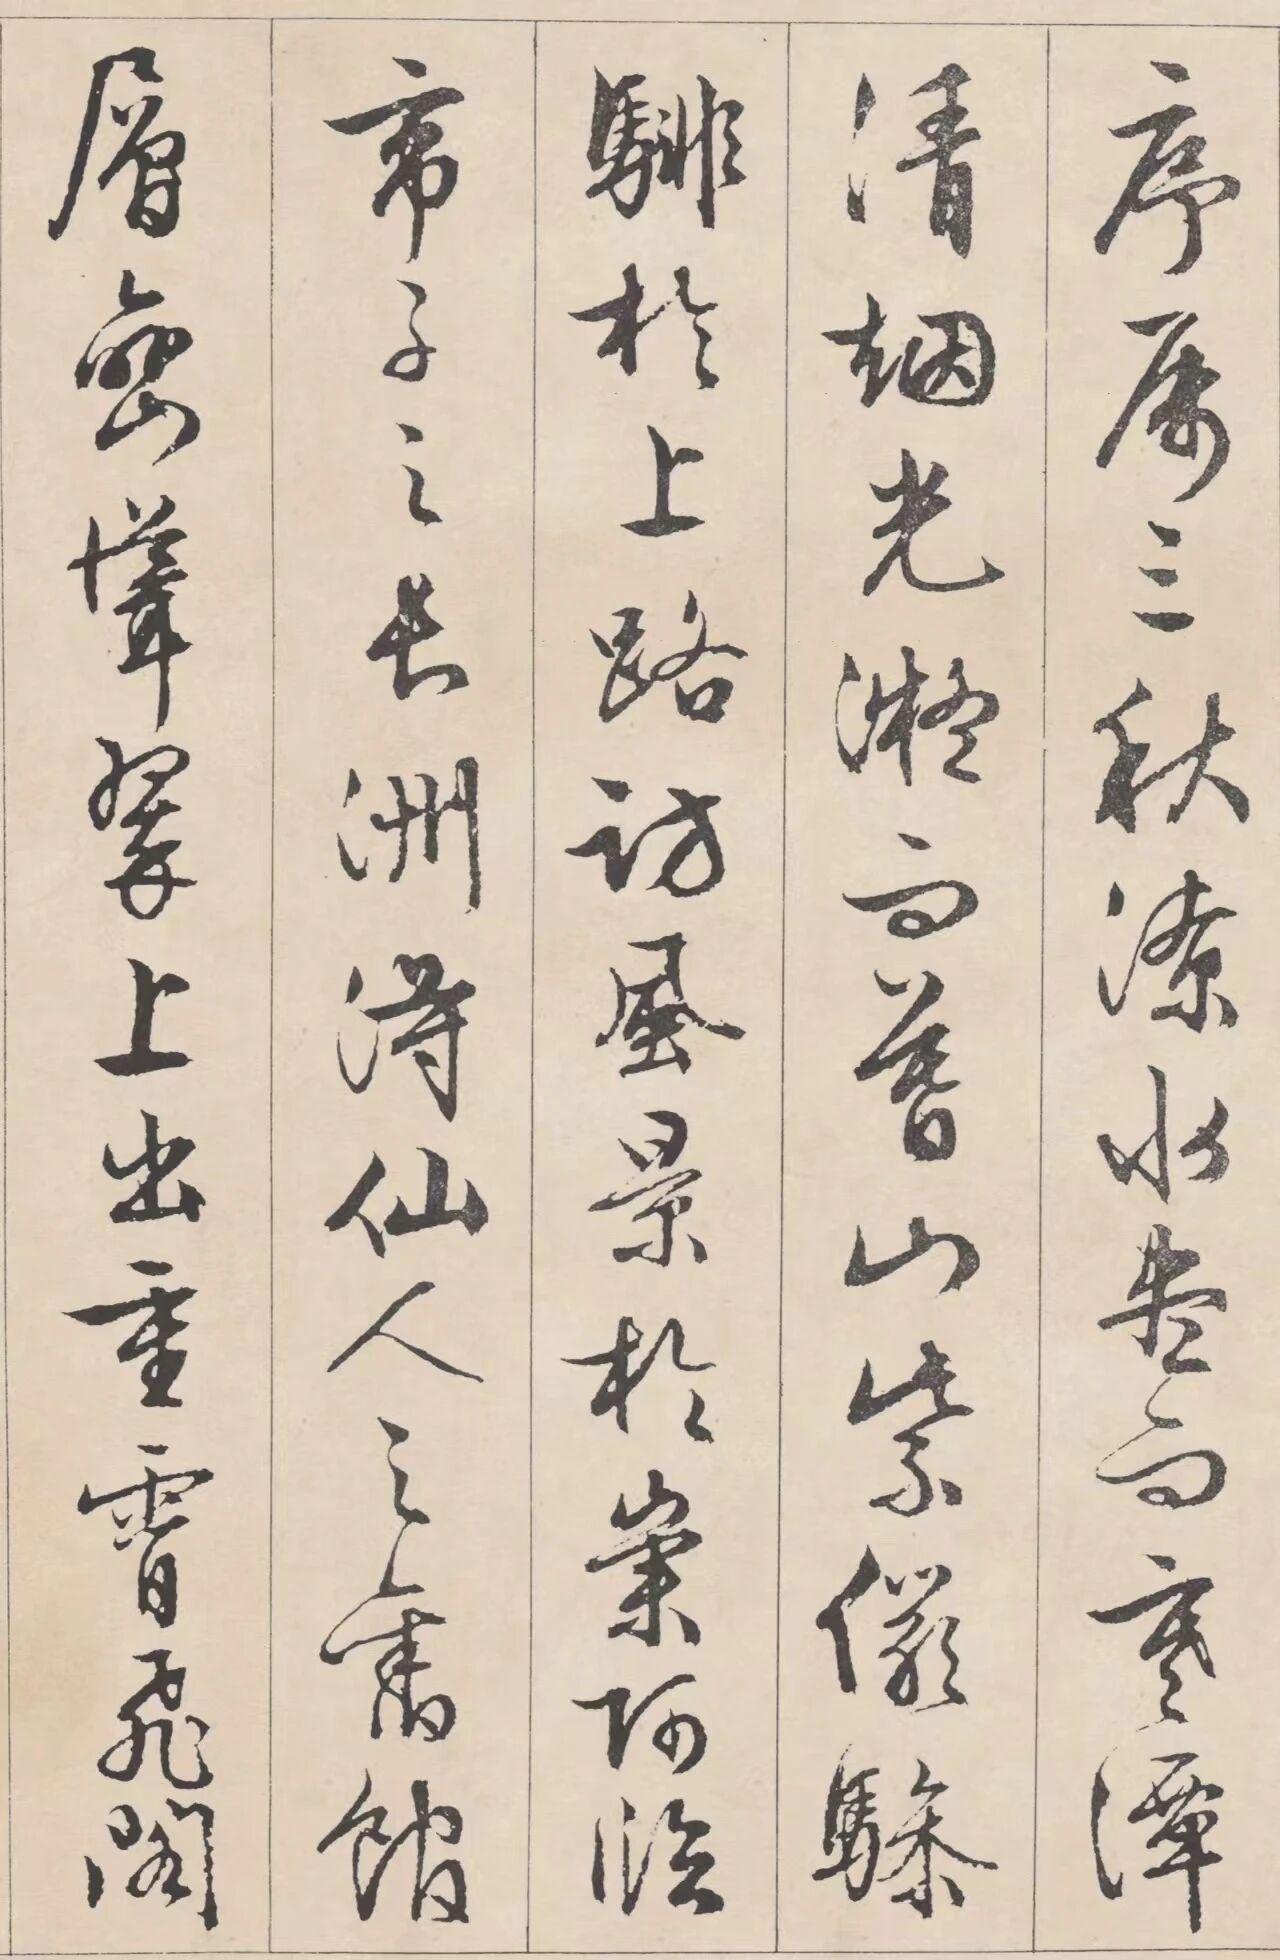 序属三秋潦水盡而寒潭
清烟光凝而暮山紫儼驂
騑於上路訪風景於崇阿臨
帝子之長洲得仙人之舊館
層巒聳翠上出重霄飛閣